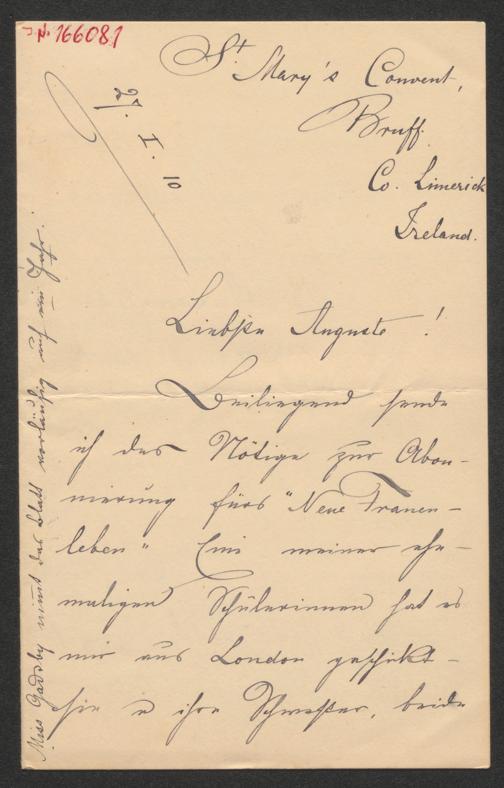 N. 166081
St. Mary's Convent,
Bruff.
Co. Limerick
Ireland.
27. I. 10
Liebste Auguste!
Beiliegend sende
ich das Nötige zur Abon-
nierung fürs "Neue Frauen-
leben" Eine meiner ehe-
maligen Schülerinnen hat es
mir aus London geschickt –
sie u ihre Schwester, beide
Miss Gadsby nimt das Blatt vorläufig auf ein Jahr.